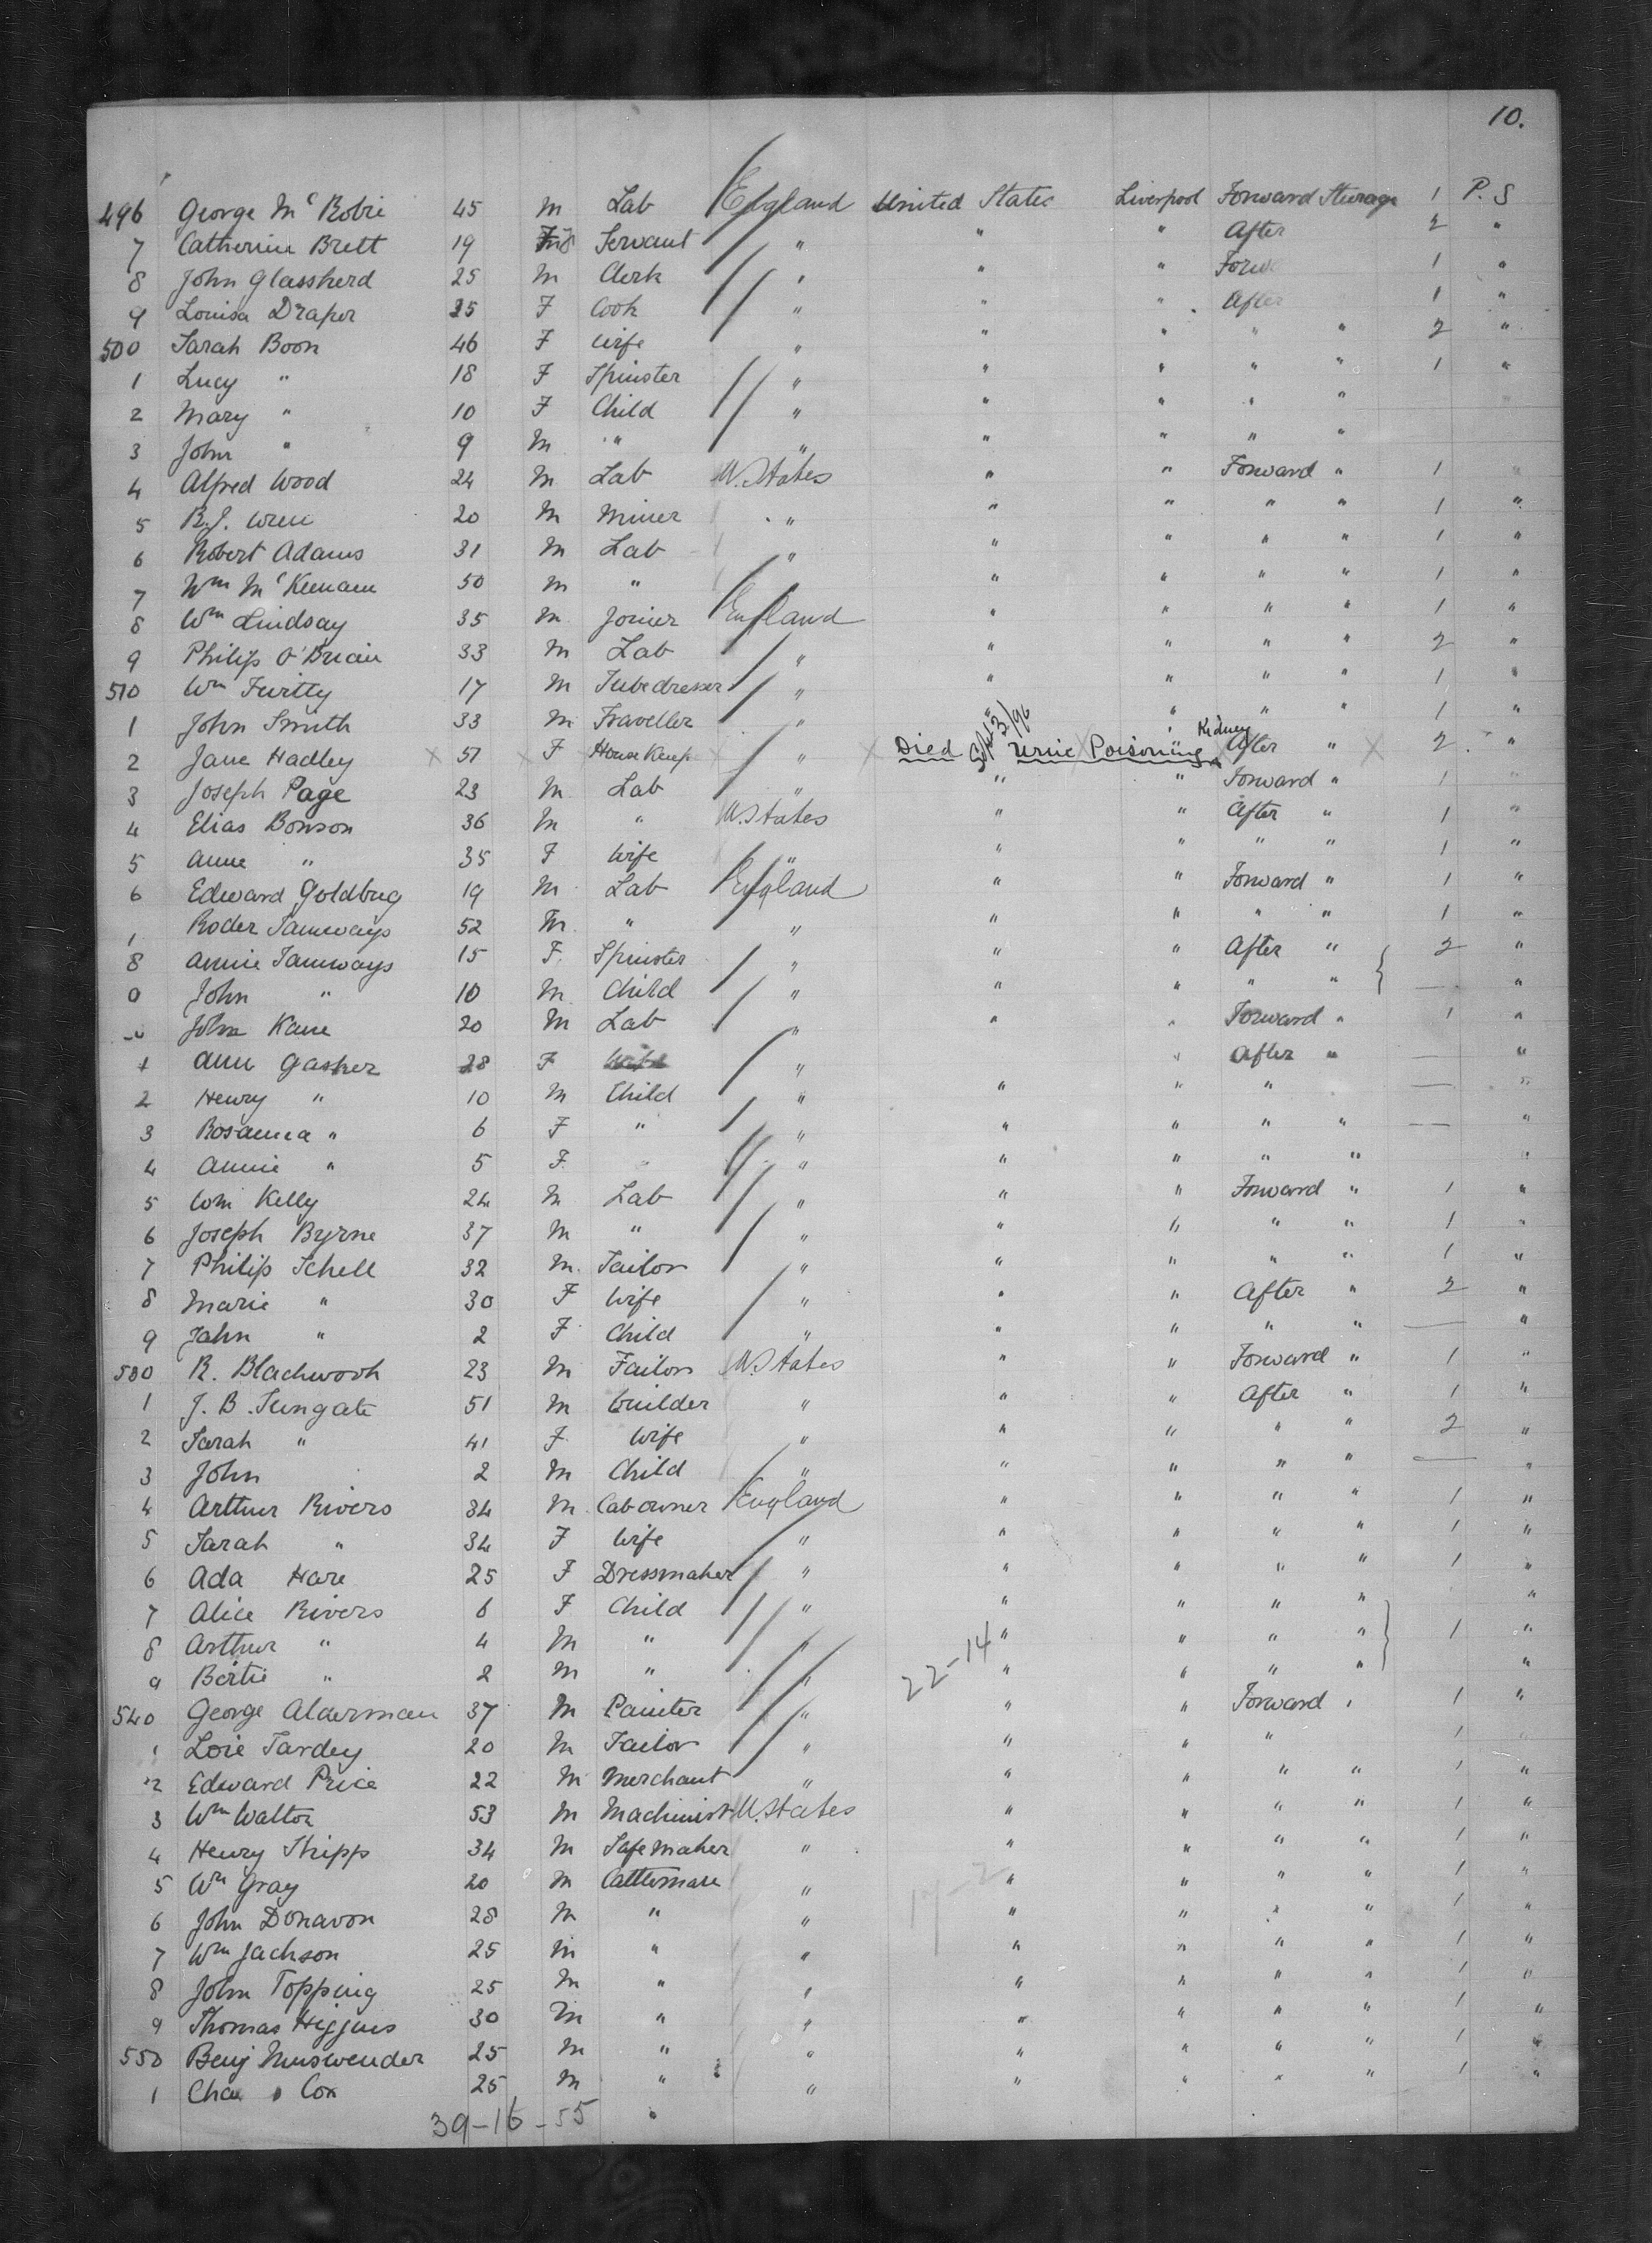 10.
496 George Mc Robie 45 M Lab England United States Liverpool Forward Sturage 1 P. S
7 Catherine Brett 19 Servant " " " After 2 "
8 John Glassherd 25 M Clerk " " " Forw 1 "
9 Louisa Draper 25 F Cook " " " After 1 "
500 Sarah Boon 46 F Wife " " " " " 2 "
1 Lucy " 18 F Spinster " " " " " 1 "
2 Mary " 10 F Child " " " " "
3 John " 9 M " " " " " "
4 Alfred Wood 24 M Lab U. States " " Forward " 1 "
5 R.J. Wren 20 M Miner " " " " " 1 "
6 Robert Adams 31 M Lab " " " " " 1 "
7 Wm Mc Keenam 50 M " " " " " 1 "
8 Wm Lindsay 35 M Joiner England " " " " 1 "
9 Philip O'Briain 33 M Lab " " " " " 2 "
510 Wm 17 M Tubedresser " " " " " 1 "
1 John Smith 33 M Traveller " " " " 1 "
2 Jane Hadley X 51 X F House Keep X " X Died 3/96 Uric Poisoning Kidney After " X 2 "
3 Joseph Page 23 M Lab " " " Forward " 1 "
4 Elias Bonson 36 M " U. States " " After " 1 "
5 Anne " 35 F Wife " " " " " 1 "
6 Edward Goldbug 19 M Lab England " " Forward " 1 "
Roder Tamways 52 M " " " " " " 1 "
8 Annie Tamways 15 F. Spinster " " " After " 2 "
9 John " 10 M Child " " " " " — "
John Kane 20 M Lab " " " Forward " 1 "
1 Ann Gasher 28 F " " After " — "
2 Henry " 10 M Child " " " " — "
3 Rosanna " 6 F " " " " " " — "
4 Annie " 5 F " " " " " " "
5 Wm Kelly 24 M Lab " " " Forward " 1 "
6 Joseph Byrne 37 M " " " " " " 1 "
7 Philip Schell 32 M. Tailor " " " " " 1 "
8 Marie " 30 F Wife " " " After " 2 "
9 John " 2 F Child " " " " " — "
530 R. Blackwook 23 M Tailor U. States " " Forward " 1 "
1 J. B. Sungate 51 M builder " " " After " 1 "
2 Sarah " 41 F Wife " " " " " 2 "
3 John 2 M Child " " " " " — "
4 Arthur Rivers 34 M Cab owner England " " " " 1 "
5 Sarah " 34 F Wife " " " " " 1 "
6 Ada Hare 25 F Dressmaker " " " " " 1 "
7 Alice Rivers 6 F Child " " " " " "
8 Arthur " 4 M " " " " " " 1 "
9 Bertie " 2 M " " 22-14 " " " " "
540 George Alderman 37 M Painter " " " Forward " 1 "
1 Loie Tardey 20 M Tailor " " " " 1
2 Edward Price 22 M Merchant " " " " " 1 "
3 Wm Walton 53 M Machinist U. States " " " " 1 "
4 Henry Shipps 34 M Safe maker " " " " " 1 "
5 Wm Gray 20 M Cattleman " " " " " 1 "
6 John Donavon 28 M " " " " " " 1 "
7 Wm Jackson 25 M " " " " " " 1 "
8 John Topping 25 M " " " " " " 1 "
9 Thomas Higgins 30 M " " " " " " 1 "
550 Benj 25 M " " " " " " 1 "
1 Chas Cox 25 M " " " " " " 1 "
39-16-55 "